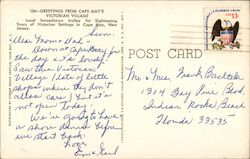 104—GREETINGS FROM CAPE MAY'S
VICTORIAN VILLAGE
Local horsedrawn trolley for Sightseeing
Tours of Victorian Settings in Cape May, New
Jersey.
Sun.
Dear Mom & Dad—
Down at Cape May for
the day – it's lovely.
Saw this Victorian
Village (lots of little
shops where they don't
allow cars) but it's
not open today.
We're going to have
a shore dinner before
we start back.
Love,
POST CARD
13c
Mr. & Mrs. Frank
1304 Bay Pine Blvd.
Indian Rocks Beach
Florida 33535